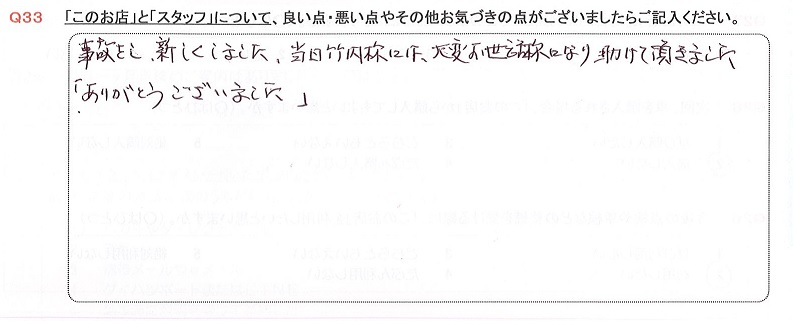 Q33 「このお店」と「スタッフ」について、良い点・悪い点やその他お気づきの点がございましたらご記入ください。
事故をし、新しくしました、当日竹内様には、大変お世話様になり助けて頂きました
「ありがとうございました」